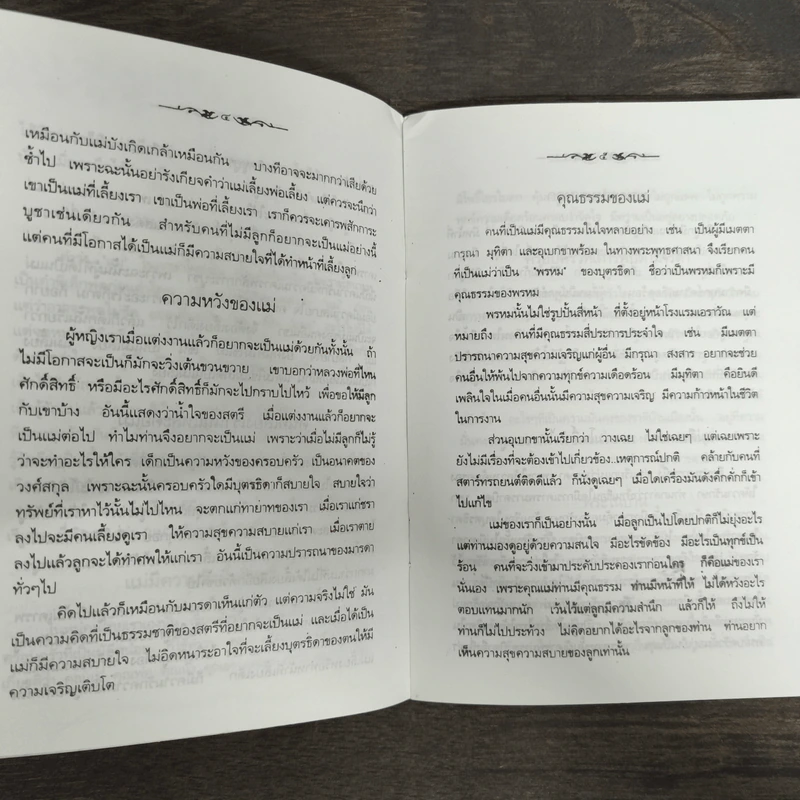 ๔
เหมือนกับแม่บังเกิดเกล้าเหมือนกัน บางทีอาจจะมากกว่าเสียด้วย
ซ้ำไป เพราะฉะนั้นอย่ารังเกียจคำว่าแม่เลี้ยงพ่อเลี้ยง แต่ควรจะนึกว่า
เขาเป็นแม่ที่เลี้ยงเรา เขาเป็นพ่อที่เลี้ยงเรา เราก็ควรจะเคารพสักการะ
บูชาเช่นเดียวกัน สำหรับคนที่ไม่มีลูกก็อยากจะเป็นแม่อย่างนี้
แต่คนที่มีโอกาสได้เป็นแม่ก็มีความสบายใจที่ได้ทำหน้าที่เลี้ยงลูก
ความหวังของแม่
ผู้หญิงเราเมื่อแต่งงานแล้วก็อยากจะเป็นแม่ด้วยกันทั้งนั้น ถ้า
ไม่มีโอกาสจะเป็นก็มักจะวิ่งเต้นขวนขวาย เขาบอกว่าหลวงพ่อที่ไหน
ศักดิ์สิทธิ์ หรือมีอะไรศักดิ์สิทธิ์ก็มักจะไปกราบไปไหว้ เพื่อขอให้มีลูก
กับเขาบ้าง อันนี้แสดงว่าน้ำใจของสตรี เมื่อแต่งงานแล้วก็อยากจะ
เป็นแม่ต่อไป ทำไมท่านจึงอยากจะเป็นแม่ เพราะว่าเมื่อไม่มีลูกก็ไม่รู้
ว่าจะทำอะไรให้ใคร เด็กเป็นความหวังของครอบครัว เป็นอนาคตของ
วงศ์สกุล เพราะฉะนั้นครอบครัวใดมีบุตรธิดาก็สบายใจ สบายใจว่า
ทรัพย์ที่เราหาไว้นั้นไม่ไปไหน จะตกแก่ทายาทของเรา เมื่อเราแก่ชรา
ลงไปจะมีคนเลี้ยงดูเรา ให้ความสุขความสบายแก่เรา เมื่อเราตาย
ลงไปแล้วลูกจะได้ทำศพให้แก่เรา อันนี้เป็นความปรารถนาของมารดา
ทั่วๆไป
คิดไปแล้วก็เหมือนกับมารดาเห็นแก่ตัว แต่ความจริงไม่ใช่ มัน
เป็นความคิดที่เป็นธรรมชาติของสตรีที่อยากจะเป็นแม่ และเมื่อได้เป็น
แม่ก็มีความสบายใจ ไม่อิดหนาระอาใจที่จะเลี้ยงบุตรธิดาของตนให้มี
ความเจริญเติบโต
๕
คุณธรรมของแม่
คนที่เป็นแม่มีคุณธรรมในใจหลายอย่าง เช่น เป็นผู้มีเมตตา
กรุณา มุทิตา และอุเบกขาพร้อม ในทางพระพุทธศาสนา จึงเรียกคน
ที่เป็นแม่ว่าเป็น "พรหม" ของบุตรธิดา ชื่อว่าเป็นพรหมก็เพราะมี
คุณธรรมของพรหม
พรหมนั้นไม่ใช่รูปปั้นสี่หน้า ที่ตั้งอยู่หน้าโรงแรมเอราวัณ แต่
หมายถึง คนที่มีคุณธรรมสี่ประการประจำใจ เช่น มีเมตตา
ปรารถนาความสุขความเจริญแก่ผู้อื่น มีกรุณา สงสาร อยากจะช่วย
คนอื่นให้พ้นไปจากความทุกข์ความเดือดร้อน มีมุทิตา คือยินดี
เพลินใจในเมื่อคนอื่นนั้นมีความสุขความเจริญ มีความก้าวหน้าในชีวิต
ในการงาน
ส่วนอุเบกขานั้นเรียกว่า วางเฉย ไม่ใช่เฉยๆ แต่เฉยเพราะ
ยังไม่มีเรื่องที่จะต้องเข้าไปเกี่ยวข้อง..เหตุการณ์ปกติ คล้ายกับคนที่
สตาร์ทรถยนต์ติดดีแล้ว ก็นั่งดูเฉยๆ เมื่อใดเครื่องมันดังคึ่กคั่กก็เข้า
ไปแก้ไข
แม่ของเราก็เป็นอย่างนั้น เมื่อลูกเป็นไปโดยปกติก็ไม่ยุ่งอะไร
แต่ท่านมองดูอยู่ด้วยความสนใจ มีอะไรขัดข้อง มีอะไรเป็นทุกข์เป็น
ร้อน คนที่จะวิ่งเข้ามาประคับประคองเราก่อนใครๆ ก็คือแม่ของเรา
นั่นเอง เพราะคุณแม่ท่านมีคุณธรรม ท่านมีหน้าที่ให้ ไม่ได้หวังอะไร
ตอบแทนมากนัก เว้นไว้แต่ลูกมีความสำนึก แล้วก็ให้ ถึงไม่ให้
ท่านก็ไม่ไปประท้วง ไม่คิดอยากได้อะไรจากลูกของท่าน ท่านอยาก
เห็นความสุขความสบายของลูกเท่านั้น